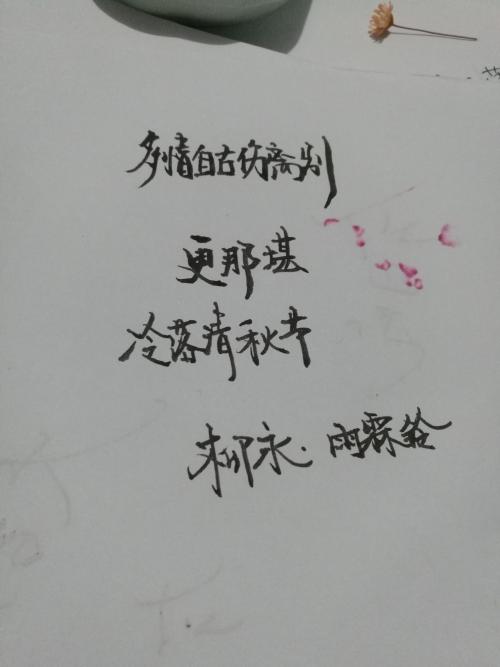 多情自古伤离别
更那堪
冷落清秋节
柳永·雨霖铃